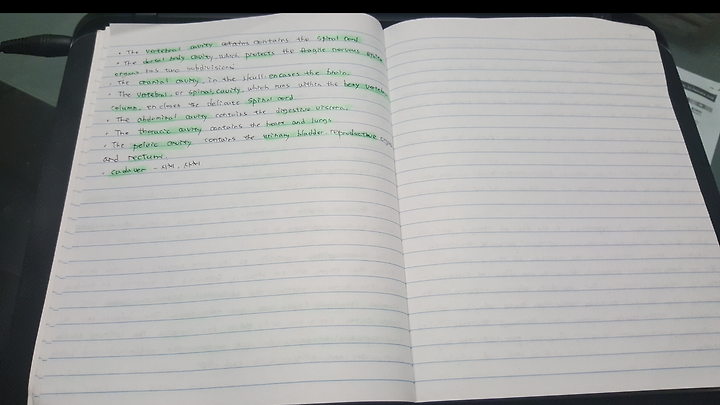 • The vertebral cavity contains the spinal cord.
• The dorsal body cavity, which protects the fragile nervous system
organs has two subdivisions.
• The cranial cavity, in the skull, encases the brain.
• The vertebral, or spinal, cavity, which runs within the bony vertebral
column, encloses the delicate spinal cord.
• The abdominal cavity contains the digestive viscera.
• The thoracic cavity contains the heart and lungs
• The pelvic cavity contains the urinary bladder, reproductive organs
and rectum.
• cadaver - 사체, 시체